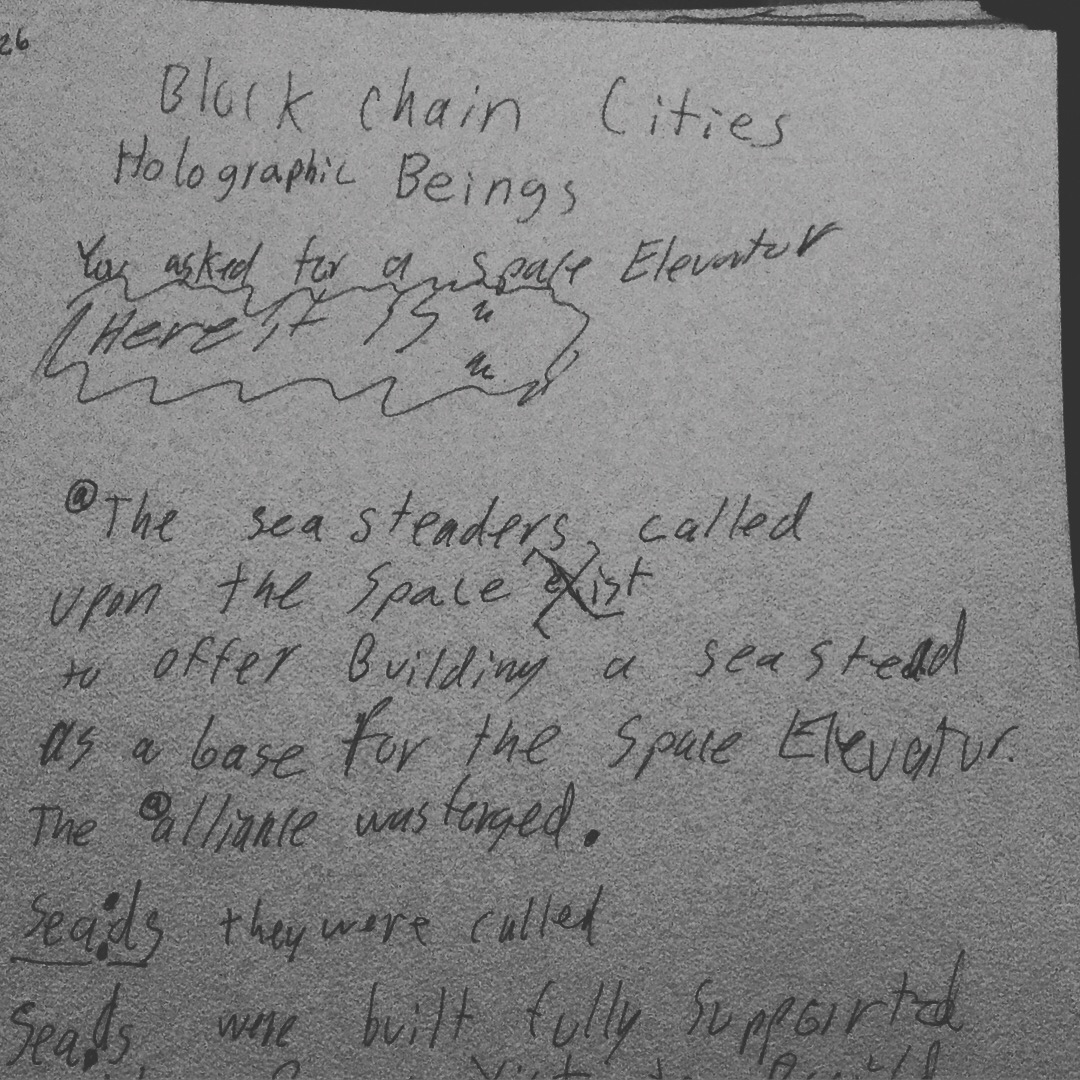 26
Block Chain Cities
Holographic Beings
You asked for a space Elevator
Here it is
@The sea steaders, called
upon the Space Xist
to offer Building a sea stead
as a base for the Space Elevator.
The @alliance was forged.
Sea:ds they were called
Sea.ds were built fully supported